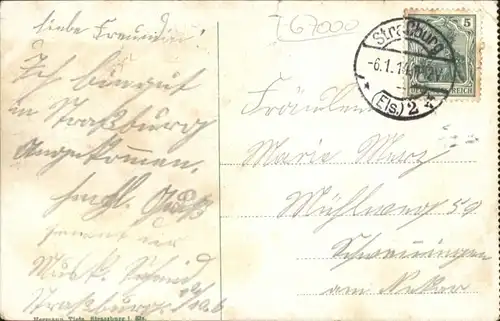 liebe Freundin!
Ich bin gut
in Straßburg
Angekommen.
herzl. Gruß
sennt
Musk. Schmid
Straßburg.
Hermann Tietz, Strassburg i. Els.
[67000
Strassburg
-6.1.14
(Els.) 2
5
REICH
Fräulein
Marie Merz
Mühlweg 59
Schwenningen
am Neckar